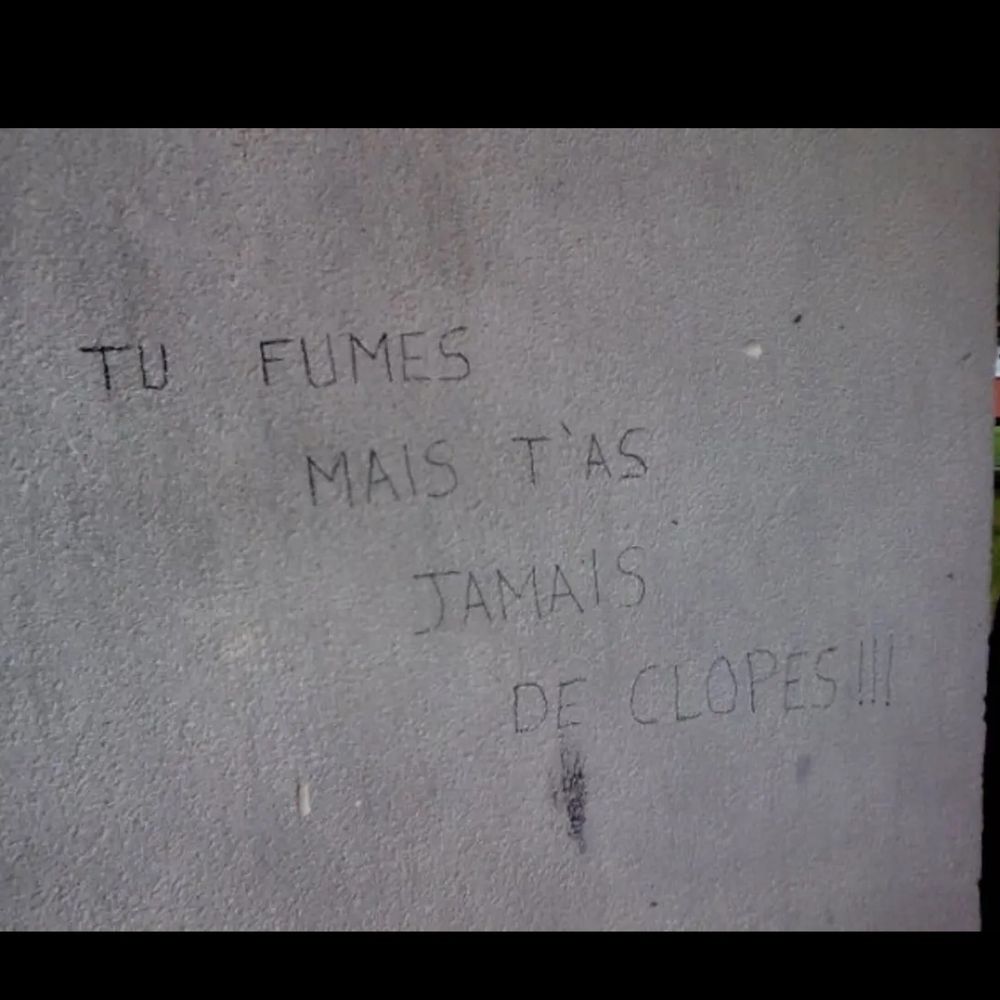 TU FUMES
MAIS T'AS
JAMAIS
DE CLOPES!!!